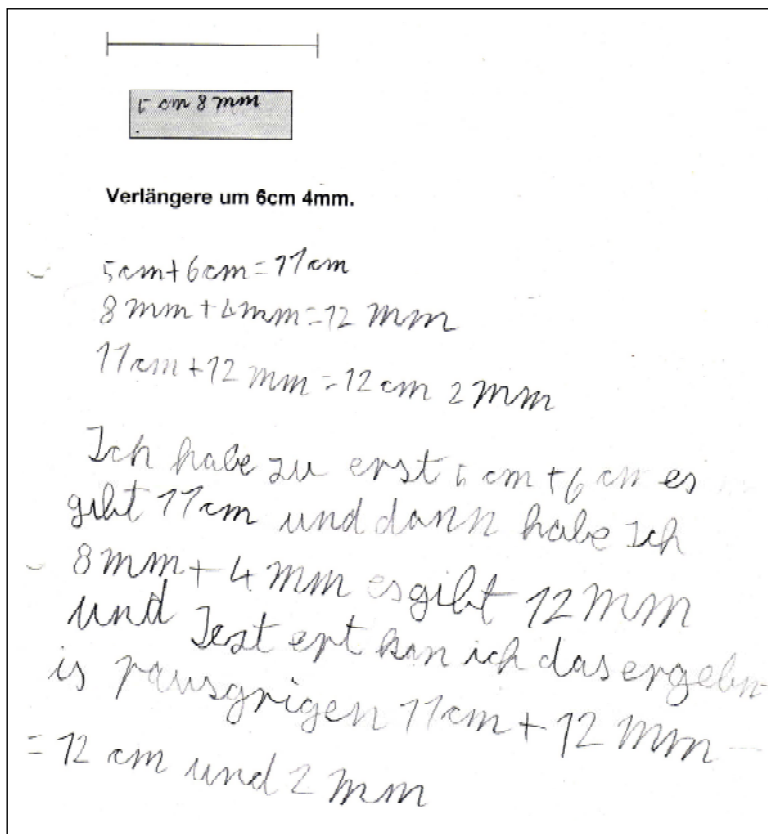 5 cm 8 mm
Verlängere um 6cm 4mm.
5cm+6cm=11cm
8mm+4mm=12 mm
11cm+12 mm=12cm 2mm
Ich habe zu erst 5 cm+6 cm es
gibt 11cm und dann habe Ich
8mm+4 mm es gibt 12mm
und Jezt ert kan ich das ergebn
is rausgrigen 11cm+12 mm
=12 cm und 2 mm